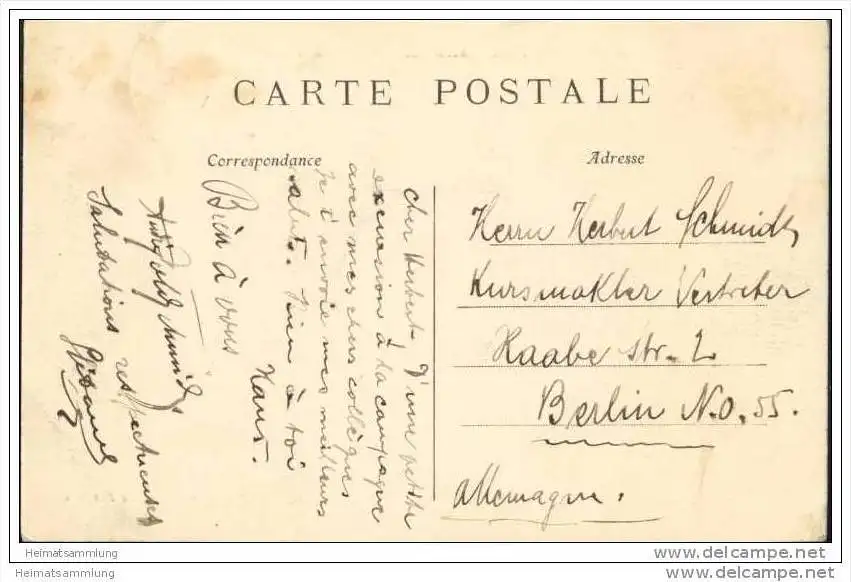 CARTE POSTALE
Correspondance
Adresse
Cher Herbert. D'une petite
excursion à la campagne
avec mes chers collègues
je t'envoie mes meilleurs
saluts. Bien à toi
Hans.
Bien à vous
Salutations respectueuses
Herrn Herbert Schmidt
Kursmakler Vertreter
Raabe str. 2
Berlin N.O. 55.
Allemagne.
Heimatsammlung
Heimatsammlung
www.delcampe.net
www.delcampe.net